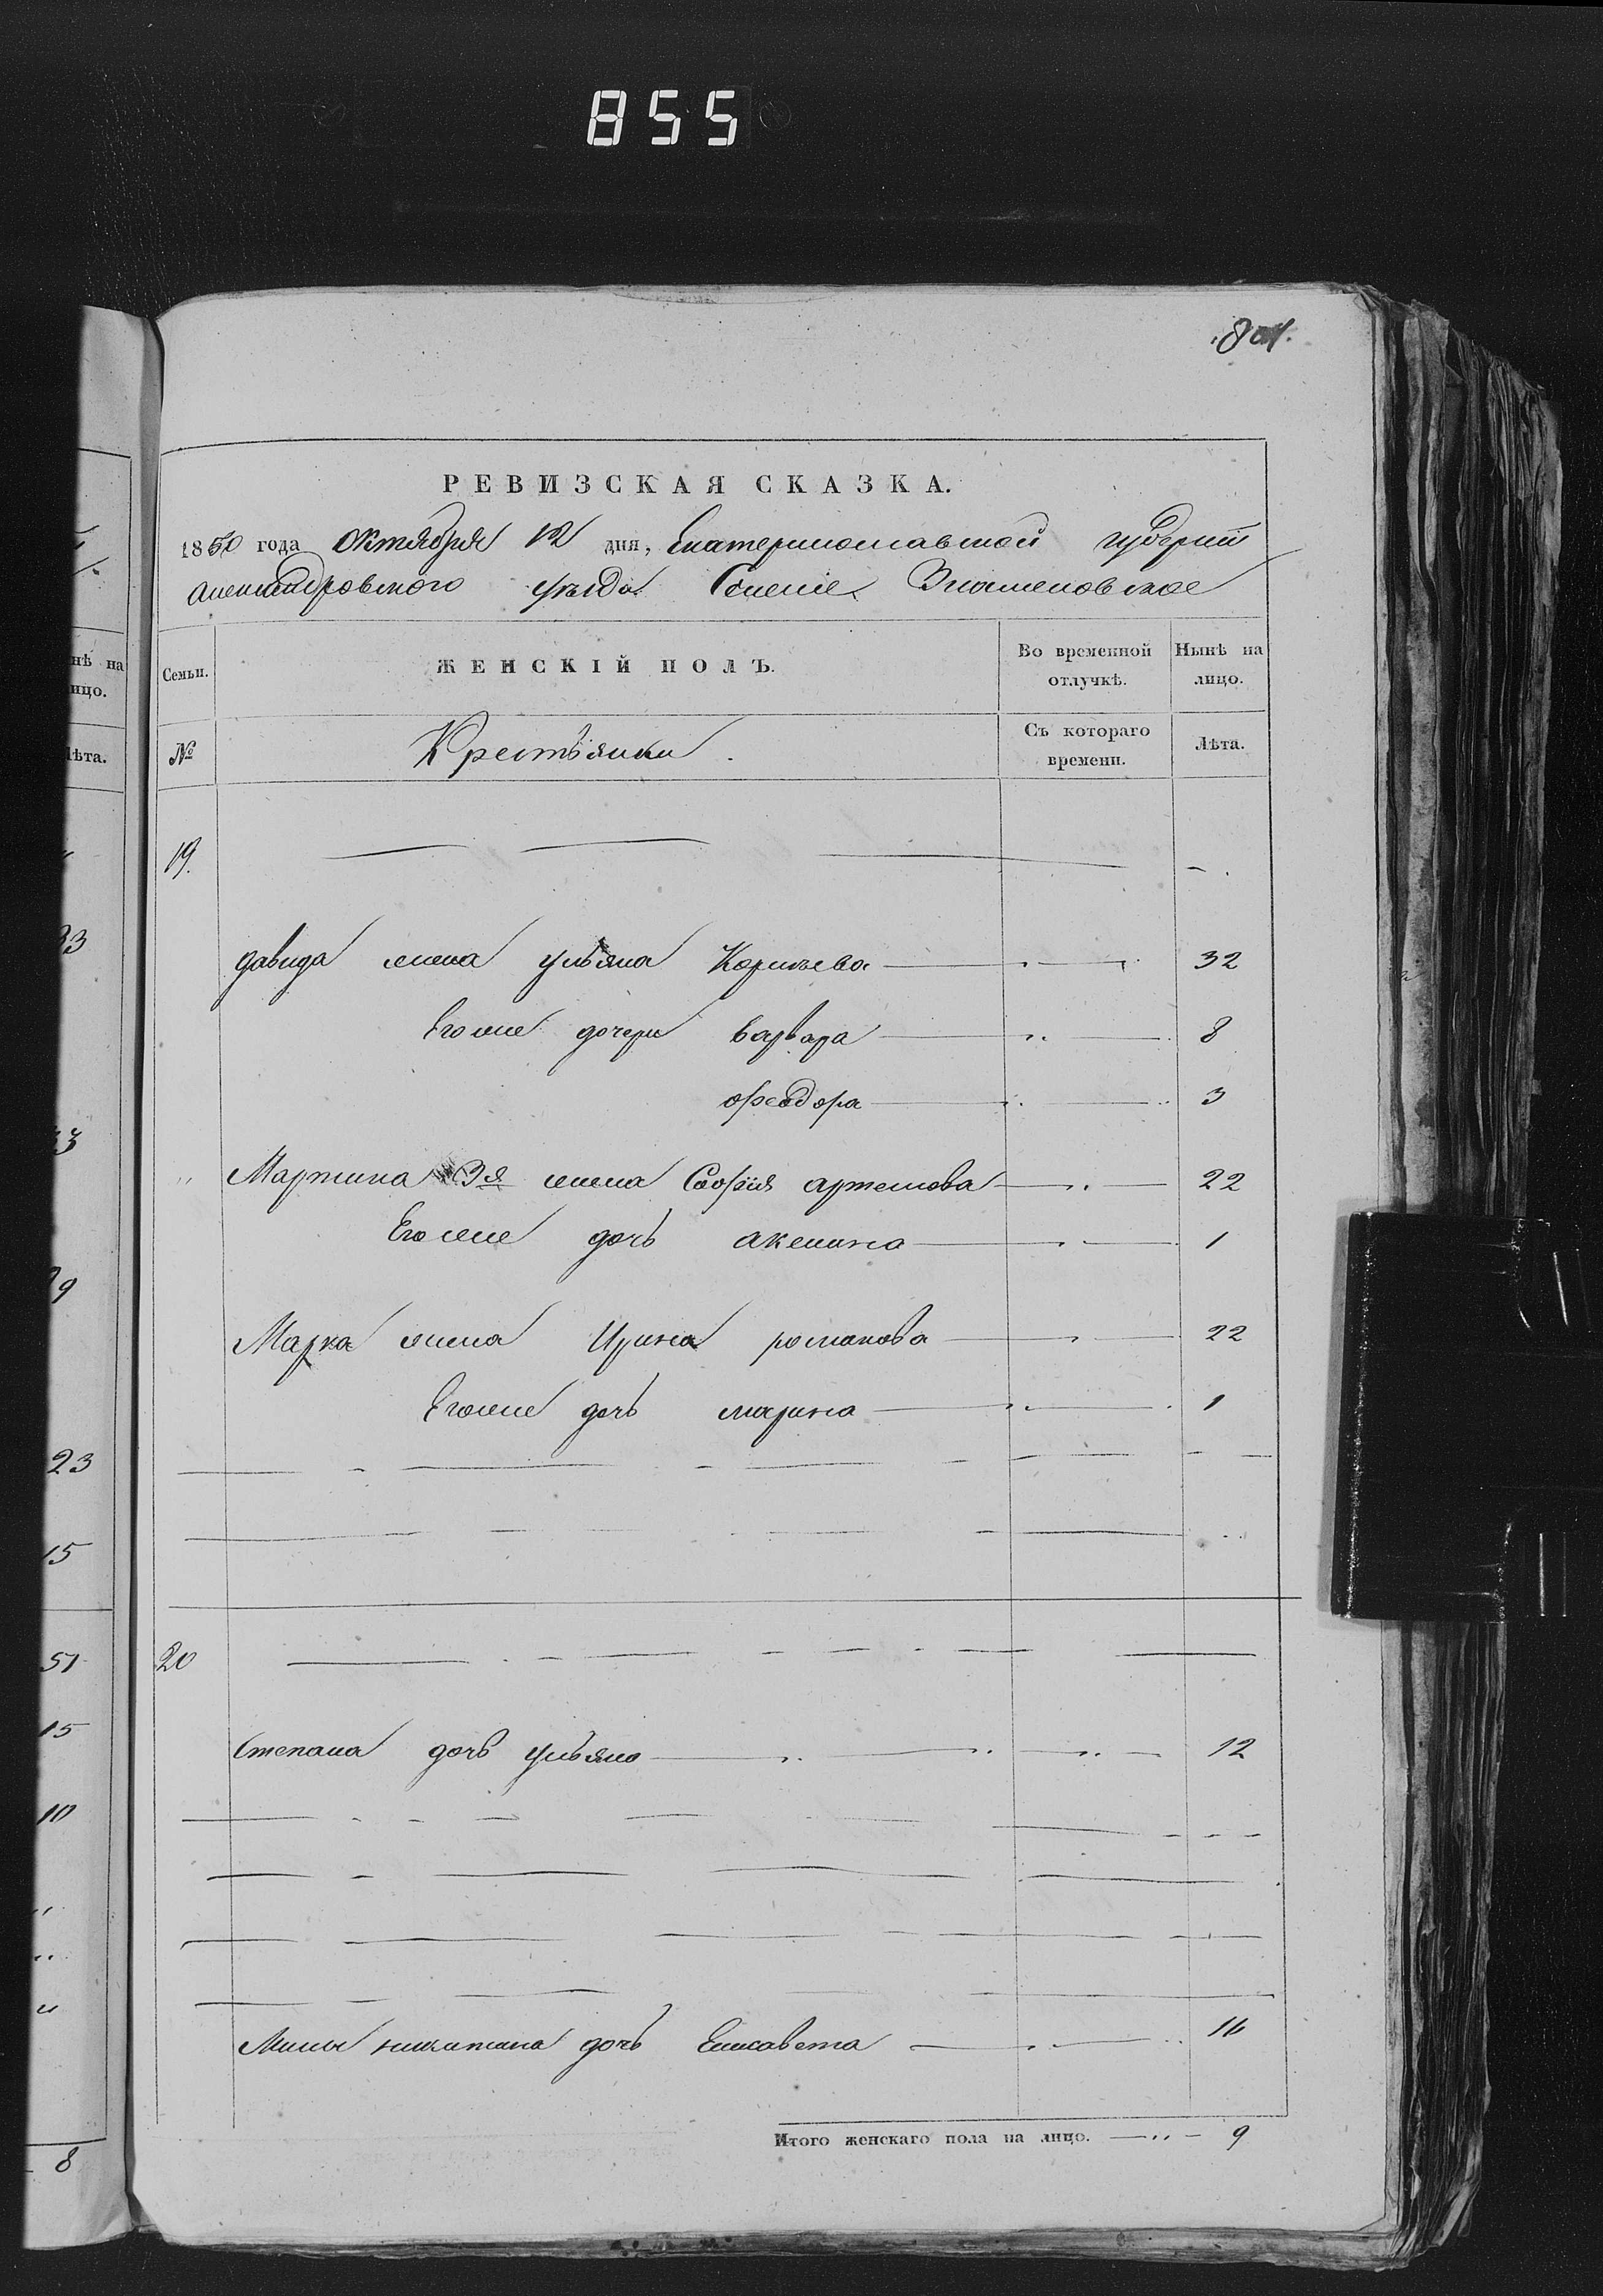 855
801.
РЕВИЗСКАЯ СКАЗКА.
1850 года Октября 12 дня, Екатеринославской губернии
александровского уезда Селение Знаменовское
Семьи. ЖЕНСКІЙ ПОЛЪ. Во временной отлучкѣ. Нынѣ на лицо.
№ Крестьянки. Съ котораго времени. Лѣта.
19.
давида жена ульяна Корнѣева 32
Его же дочери варвара 8
ѳеодора 3
" Мартина 3я жена Софія артемова 22
Его же дочь акелина 1
Марка жена Ирина романова 22
Его же дочь марина 1
20
Степана дочь ульяна 12
Мины никитина дочь Елисавета 16
Итого женскаго пола на лицо. 9
нѣ на
ицо.
Лѣта.
33
23
15
51
15
10
8